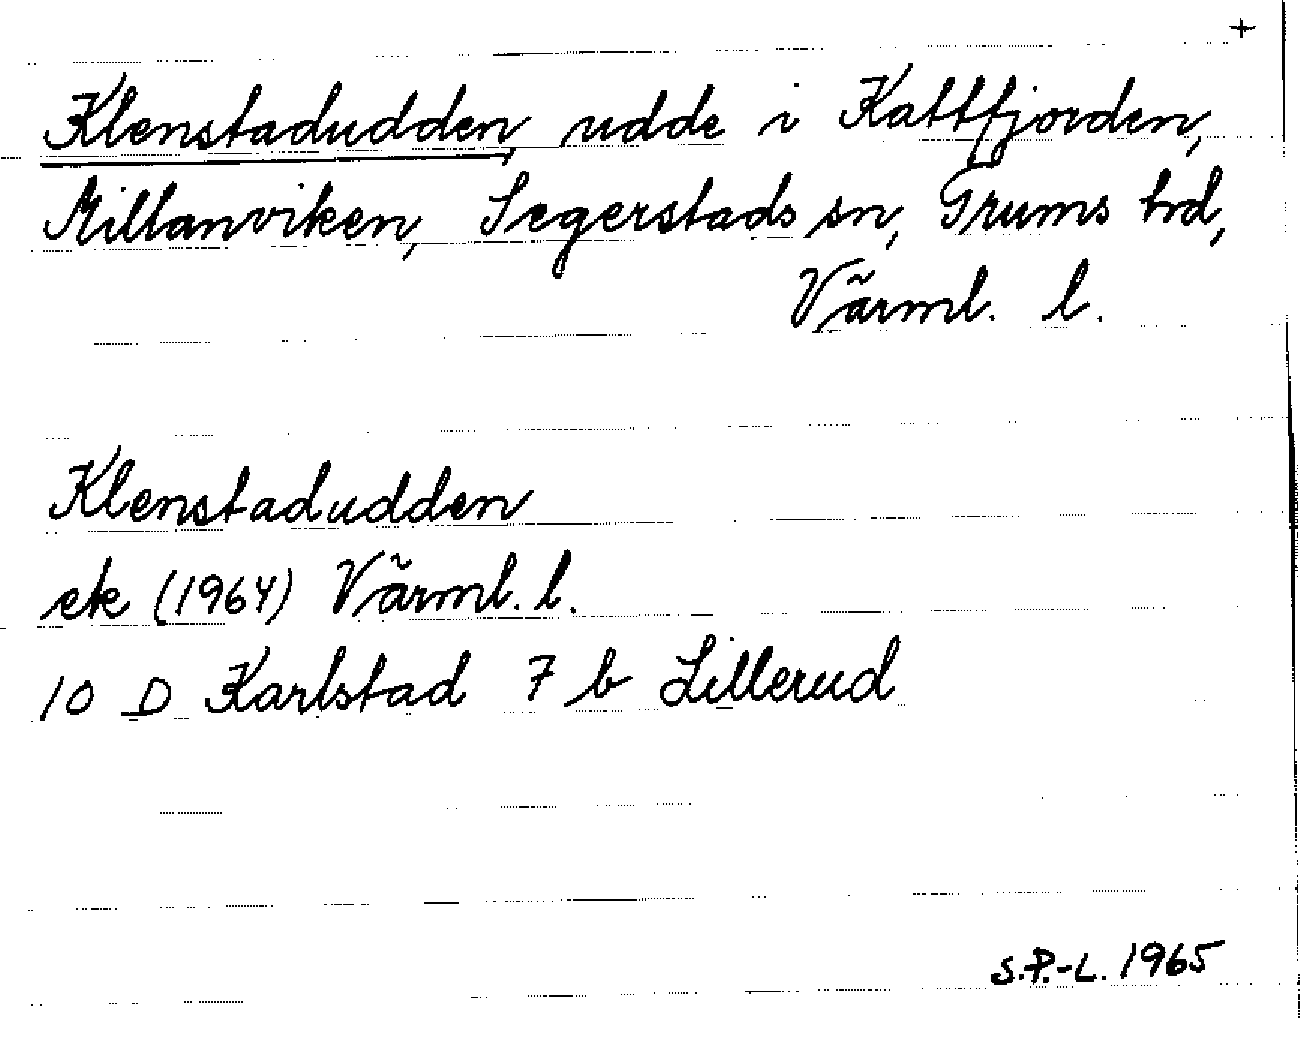 +
Klenstadudden, udde i Kattfjorden,
Millanviken, Segerstads sn, Grums hd,
Värml. l.
Klenstadudden
ek (1964) Värml. l.
10 D Karlstad 7 b Lillerud
S.P.-L. 1965